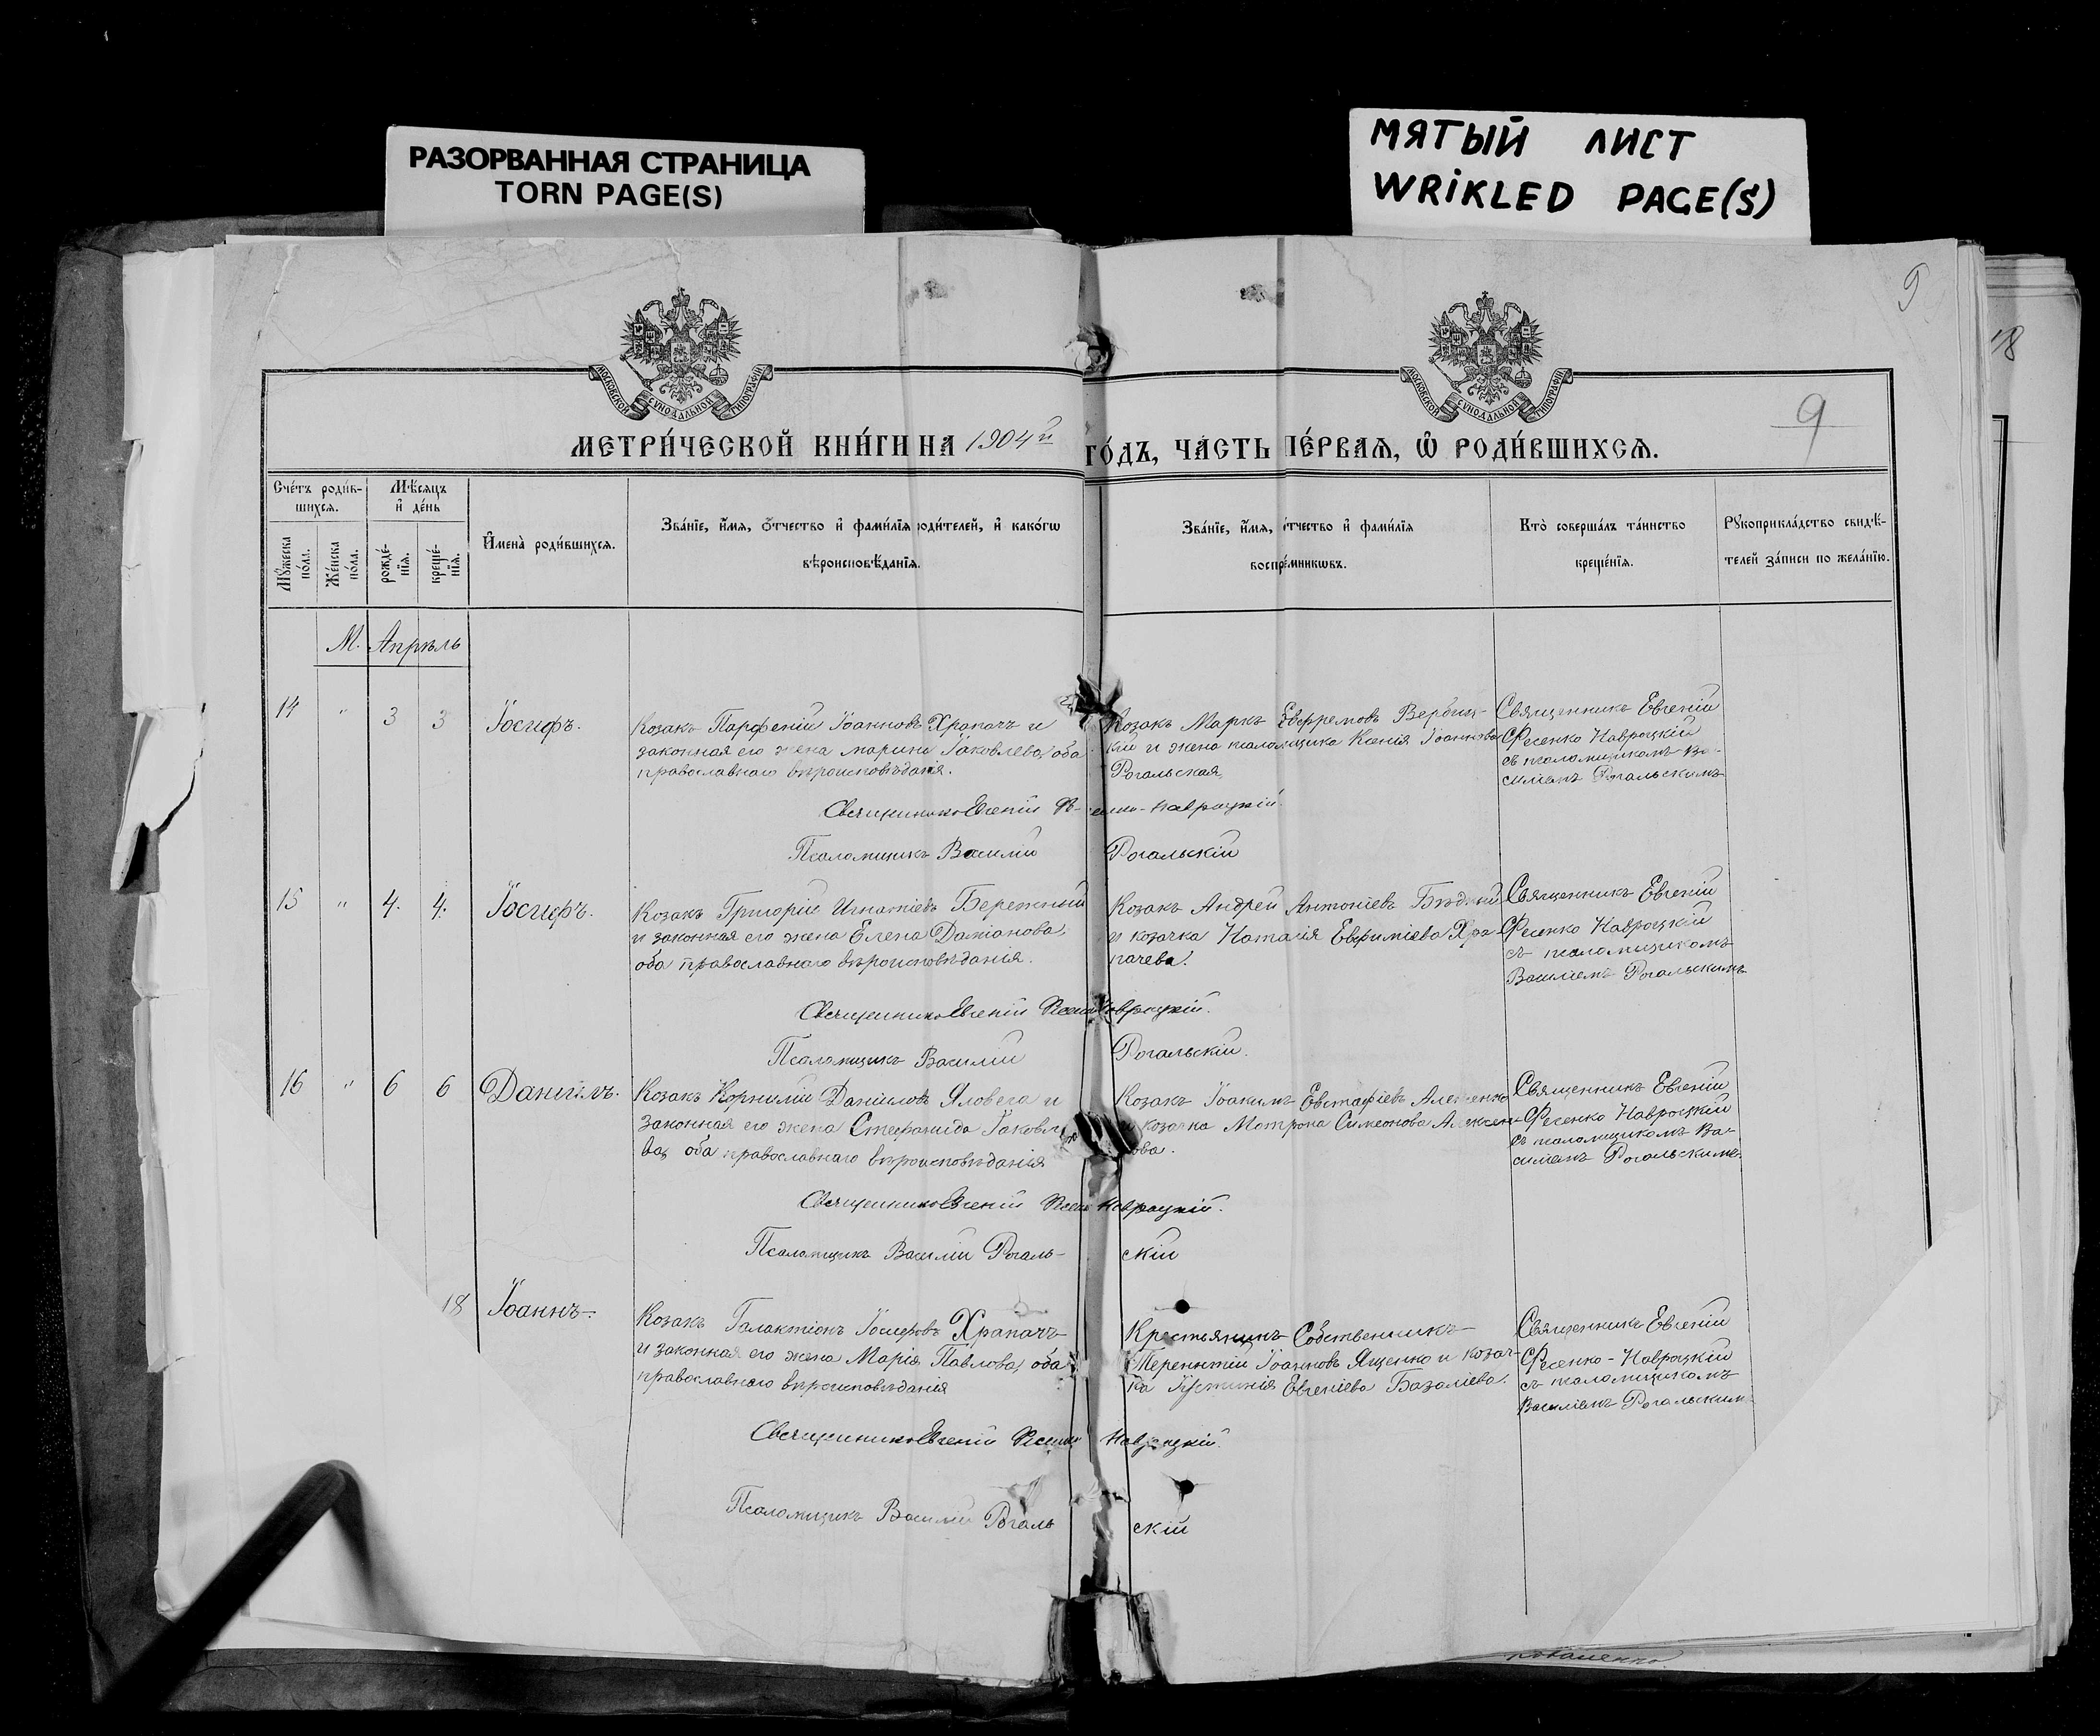 РАЗОРВАННАЯ СТРАНИЦА
TORN PAGE(S)
МЯТЫЙ ЛИСТ
WRIKLED PAGE(S)
9
18
МОСКОВСКОЙ СѴНОДАЛЬНОЙ ТИПОГРАФІИ
МОСКОВСКОЙ СѴНОДАЛЬНОЙ ТИПОГРАФІИ
9
МЕТРИ́ЧЕСКОЙ КНИ́ГИ НА 1904й ГО́ДЪ, ЧА́СТЬ ПЕ́РВАѦ, Ѡ РОДИ́ВШИХСѦ.
Сче́тъ роди́в-
шихсѧ.
Мѣ́сѧцъ
и҆ де́нь
Мꙋ́жеска по́ла.
Же́нска по́ла.
рожде́-
нїѧ.
креще́-
нїѧ.
И҆мена̀ роди́вшихсѧ.
Зва́нїе, и҆́мѧ, ѻ҆́тчество и҆ фами́лїѧ роди́телей, и҆ како́гѡ
вѣроисповѣ́данїѧ.
Зва́нїе, и҆́мѧ, ѻ҆́тчество и҆ фами́лїѧ
воспрїе́мникѡвъ.
Кто̀ соверша́лъ та́инство
креще́нїѧ.
Рꙋкоприкла́дство свидѣ́-
телей за́писи по жела́нїю.
М. Апрѣль
14 " 3 3 Іосифъ.
Козакъ Парфеній Іоанновъ Храпачъ и
законная его жена Марина Іаковлева, оба
православнаго вѣроисповѣданія.
Козакъ Маркъ Евфремовъ Вербиц-
кій и жена псаломщика Ксенія Іоаннова
Рогальская,
Священникъ Евгеній
Фесенко Навроцкій
съ псаломщикомъ Ва-
силіемъ Рогальскимъ
Священникъ Евгеній Фесенко-Навроцкій.
Псаломщикъ Василій Рогальскій
15 " 4. 4. Іосифъ.
Козакъ Григорій Игнатіевъ Бережный
и законная его жена Елена Даміанова,
оба православнаго вѣроисповѣданія.
Козакъ Андрей Антоніевъ Бѣдный
и козачка Наталія Евфиміева Хра-
пачева.
Священникъ Евгеній
Фесенко Навроцкій
съ псаломщикомъ
Василіемъ Рогальскимъ
Священникъ Евгеній Фесенко Навроцкій.
Псаломщикъ Василій Рогальскій.
16 " 6 6 Даніилъ.
Козакъ Корнилій Даніиловъ Яловега и
законная его жена Стефанида Іаковле
ва, оба православнаго вѣроисповѣданія
Козакъ Іоакимъ Евстафіевъ Алексенко
и козачка Матрона Симеонова Алексен-
кова.
Священникъ Евгеній
Фесенко Навроцкій
съ псаломщикомъ Ва-
силіемъ Рогальскимъ.
Священникъ Евгеній Фесенко Навроцкій.
Псаломщикъ Василій Рогаль- скій
18 Іоаннъ.
Козакъ Галактіонъ Іосифовъ Храпачъ
и законная его жена Марія Павлова, оба
православнаго вѣроисповѣданія
Крестьянинъ Собственникъ
Терентій Іоанновъ Ященко и козач-
ка Іустинія Евгеніева Базаліева.
Священникъ Евгеній
Фесенко-Навроцкій
съ псаломщикомъ
Василіемъ Рогальским
Священникъ Евгеній Фесенко Навроцкій.
Псаломщикъ Василій Рогаль скій